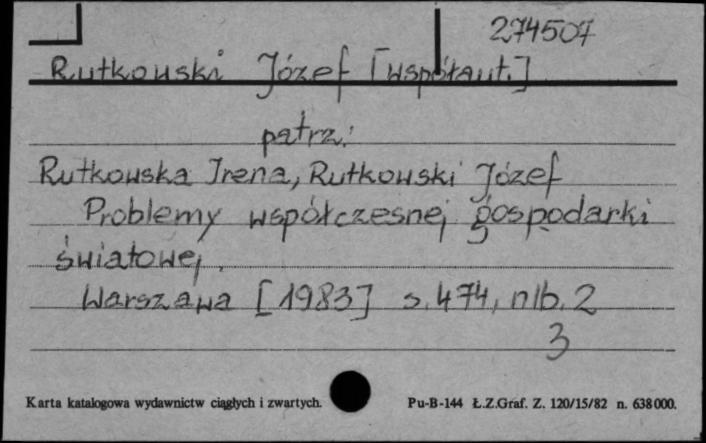 274507
Rutkowski Józef [współaut.]
patrz:
Rutkowska Irena, Rutkowski Józef
Problemy współczesnej gospodarki
światowej.
Warszawa [1983] s. 474, nlb. 2
3
Karta katalogowa wydawnictw ciągłych i zwartych. Pu-B-144 Ł.Z.Graf. Z. 120/15/82 n. 638000.